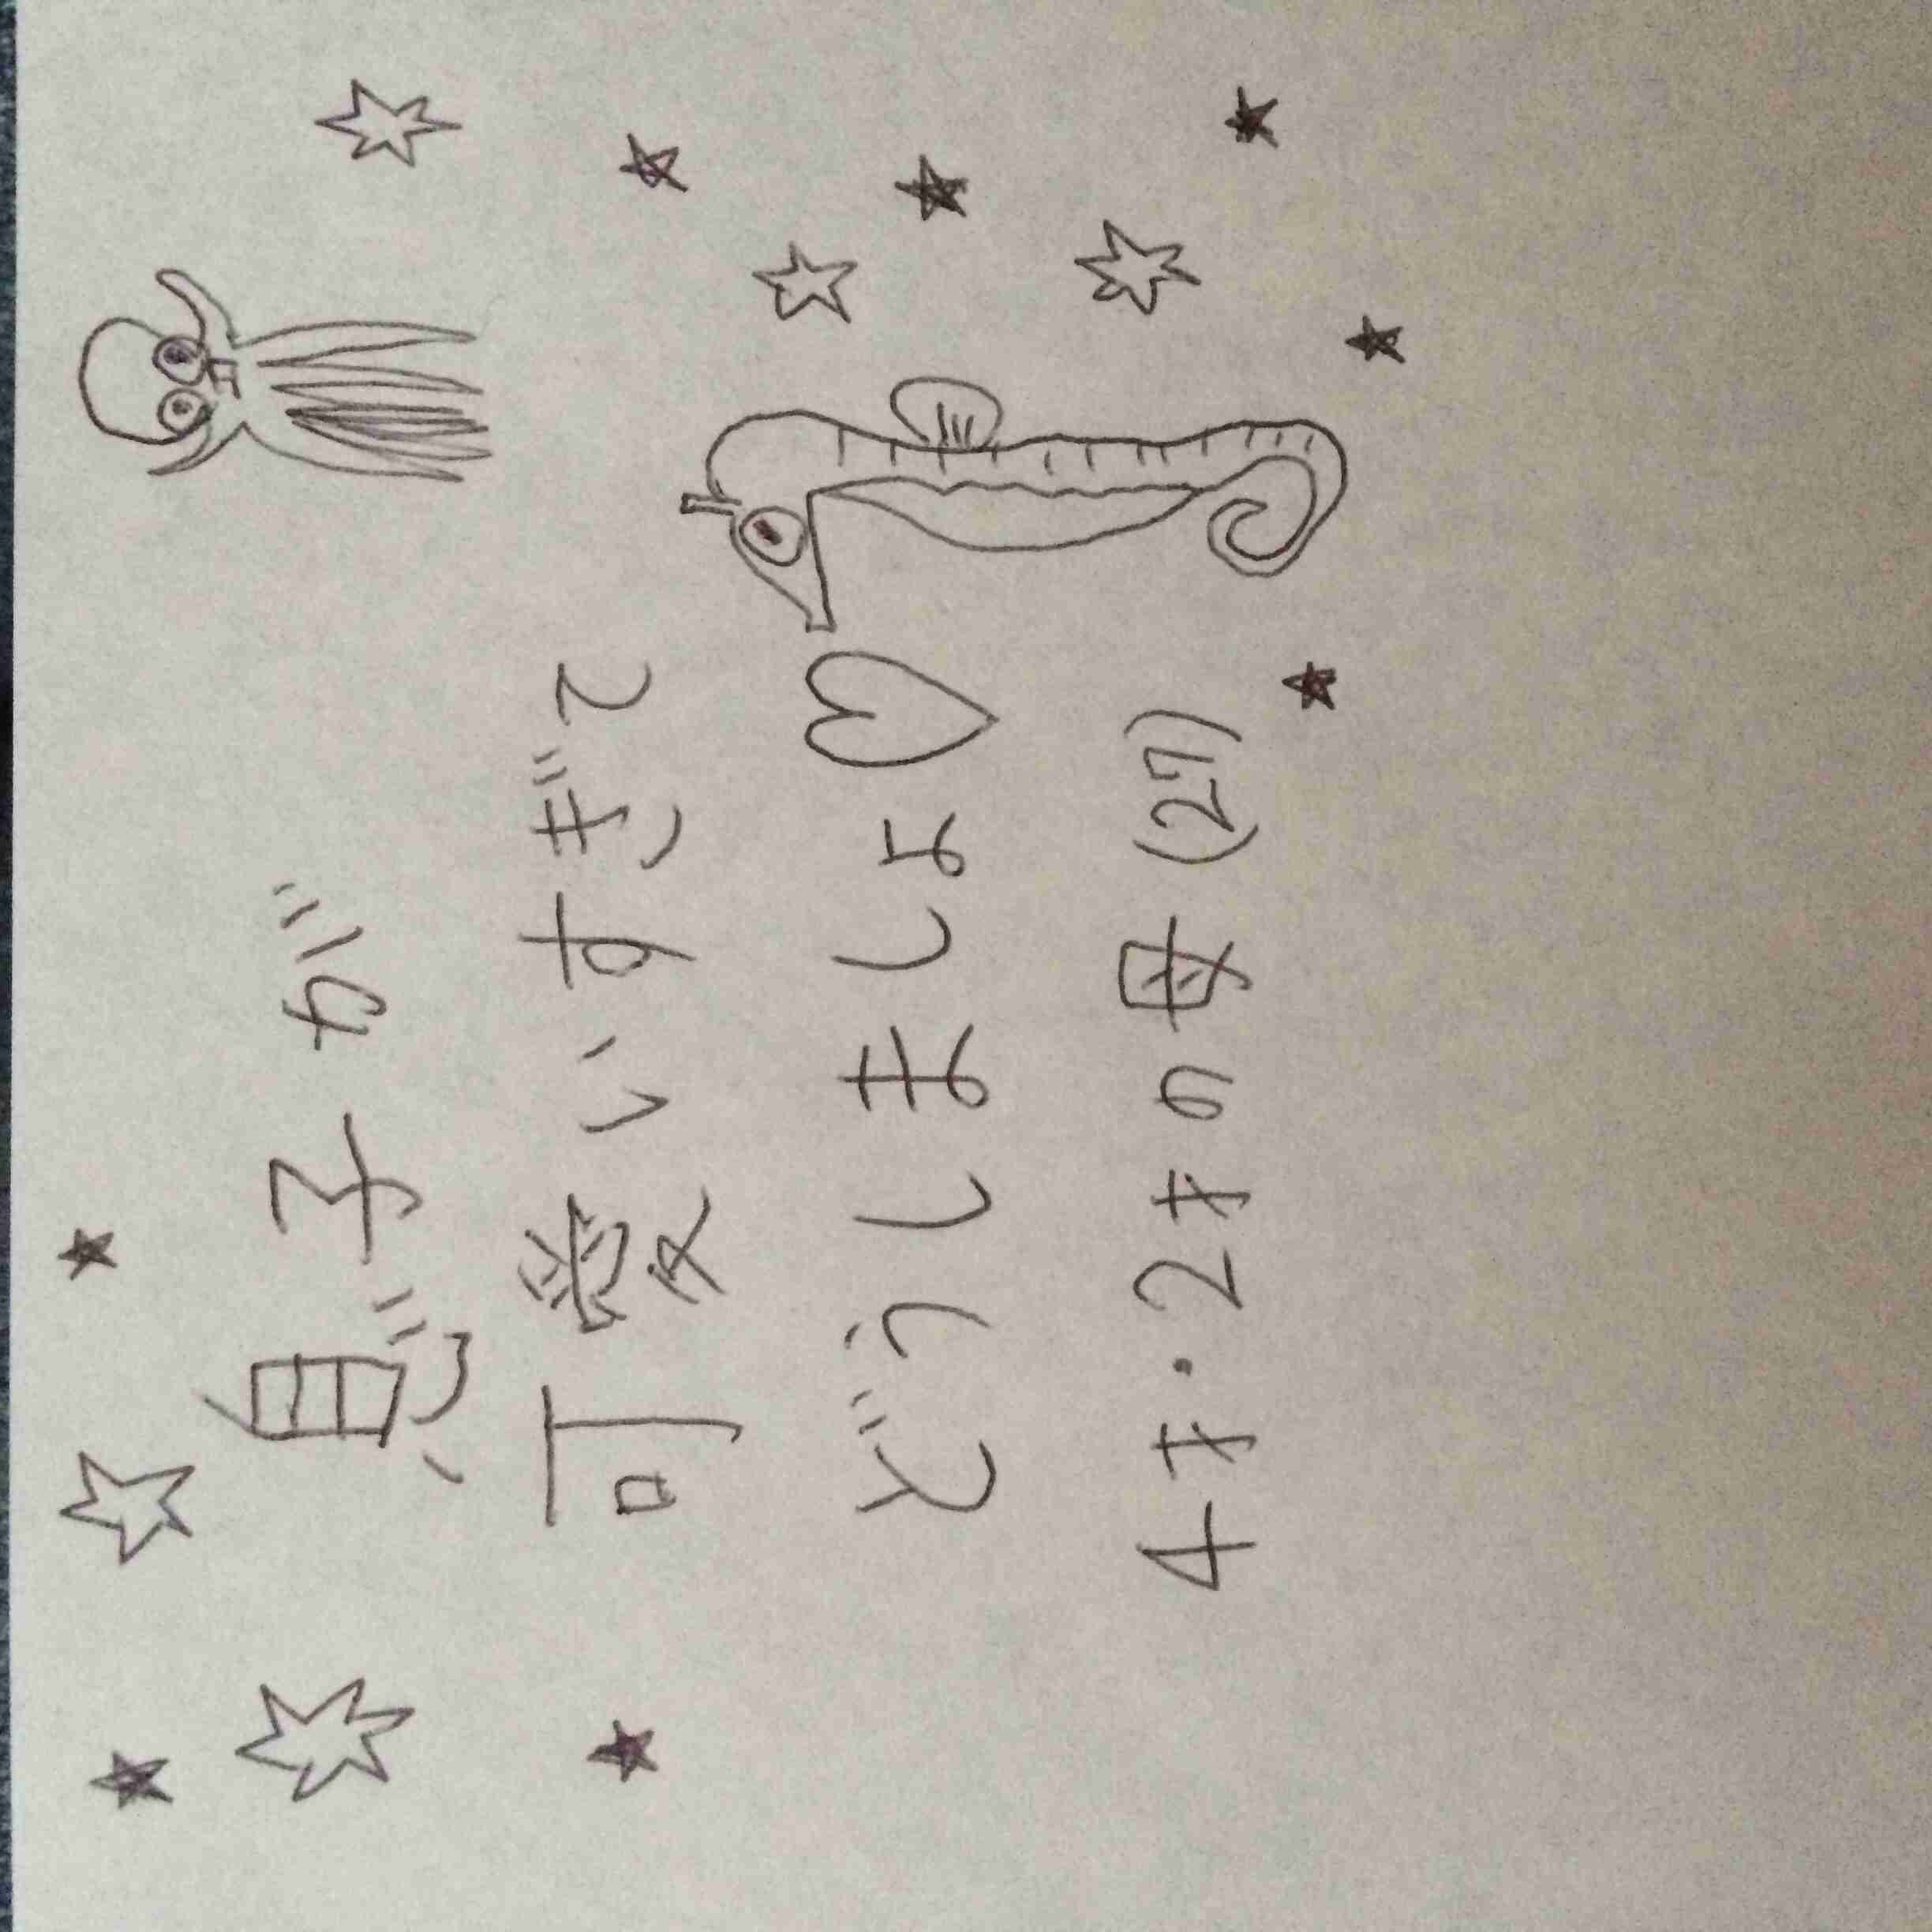 息子が
可愛いすぎて
どうしましょ♡
4才・2才の母(27)